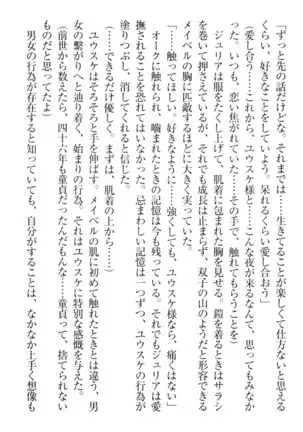 「ずっと先の話だけどな。それまでは……生きてることが楽しくて仕方ないと思える
くらい、好きなことをしていこう。呆れるくらい愛し合おう」
(愛し合う……これから、ユウスケ様と……こんな夜が来るなんて、思ってもみなか
った。いつも、恋い焦がれていた……その手で、触れてもらうことを)
ジュリアは服をたくし上げて、肌着に包まれた胸を見せる。鎧を着るときはサラシ
を巻いて押さえているが、それでも成長は止まらず、双子の山のようだと形容できる
メイベルの胸に匹敵するほどに大きく実っていた。
「……触ってほしい。好きなように……強くしても、ユウスケ様なら、痛くはない」
オークに触れられ、嚙まれたときの記憶は今も残っている。それでもジュリアは愛
撫されることを恐れてはいなかった。忌まわしい記憶は一つずつ、ユウスケの行為が
塗りつぶし、消してくれると信じた。
(……できるだけ優しく。まずは、肌着の上から……)
ユウスケはそろそろと手を伸ばす。メイベルの肌に初めて触れたときとは違う、男
女の繫がりへと辿り着く、始まりの行為。それはユウスケに特別な感慨を与えた。
(前世から数えたら、四十六年も童貞だったんだもんな……童貞って、捨てられない
ものだと思ってたよ)
男女の行為が存在すると知っていても、自分がすることは、なかなか上手く想像も